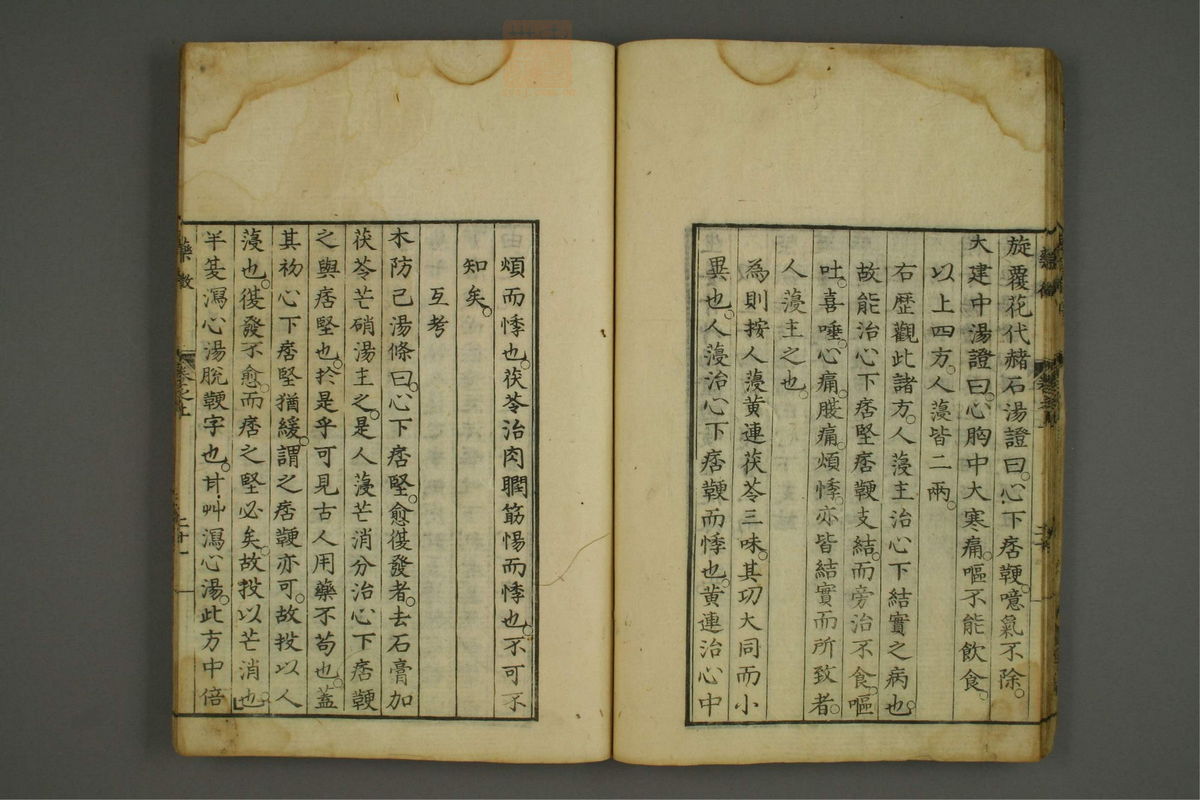 旋覆花代赭石湯證曰。心下痞鞕。噫氣不除。
大建中湯證曰。心胸中大寒痛。嘔不能飲食。
以上四方。人薓皆二兩。
右歷觀此諸方。人薓主治心下結實之病也。
故能治心下痞堅痞鞕支結。而旁治不食。嘔
吐。喜唾。心痛。腹痛。煩悸。亦皆結實而所致者。
人薓主之也。
為則按人薓黃連茯苓三味。其功大同而小
異也。人薓治心下痞鞕而悸也。黃連治心中
煩而悸也。茯苓治肉瞤筋惕而悸也。不可不
知矣。
互考
木防已湯條曰。心下痞堅。愈復發者。去石膏加
茯苓芒硝湯主之。是人薓芒消分治心下痞鞕
之與痞堅也。於是乎可見古人用藥不苟也。蓋
其初心下痞堅猶緩。謂之痞鞕亦可。故投以人
薓也。復發不愈。而痞之堅必矣。故投以芒消也。
半夏瀉心湯脫鞕字也。甘艸瀉心湯。此方中倍
藥徵
卷之上
二十一